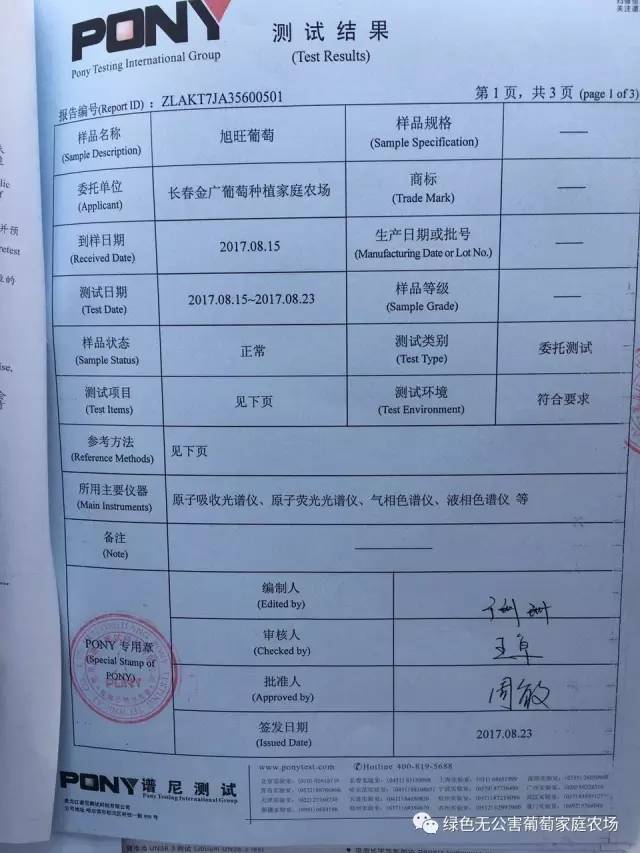 PONY
Pony Testing International Group
测试结果
(Test Results)
报告编号(Report ID)：ZLAKT7JA35600501
第 1 页，共 3 页 (page 1 of 3)
样品名称
(Sample Description)
旭旺葡萄
样品规格
(Sample Specification)
——
委托单位
(Applicant)
长春金广葡萄种植家庭农场
商标
(Trade Mark)
——
到样日期
(Received Date)
2017.08.15
生产日期或批号
(Manufacturing Date or Lot No.)
——
测试日期
(Test Date)
2017.08.15~2017.08.23
样品等级
(Sample Grade)
——
样品状态
(Sample Status)
正常
测试类别
(Test Type)
委托测试
测试项目
(Test Items)
见下页
测试环境
(Test Environment)
符合要求
参考方法
(Reference Methods)
见下页
所用主要仪器
(Main Instruments)
原子吸收光谱仪、原子荧光光谱仪、气相色谱仪、液相色谱仪 等
备注
(Note)
————
PONY 专用章
(Special Stamp of
PONY)
PONY
编制人
(Edited by)
审核人
(Checked by)
王卓
批准人
(Approved by)
周敏
签发日期
(Issued Date)
2017.08.23
PONY谱尼测试
Pony Testing International Group
www.ponytest.com
Hotline 400-819-5688
绿色无公害葡萄家庭农场